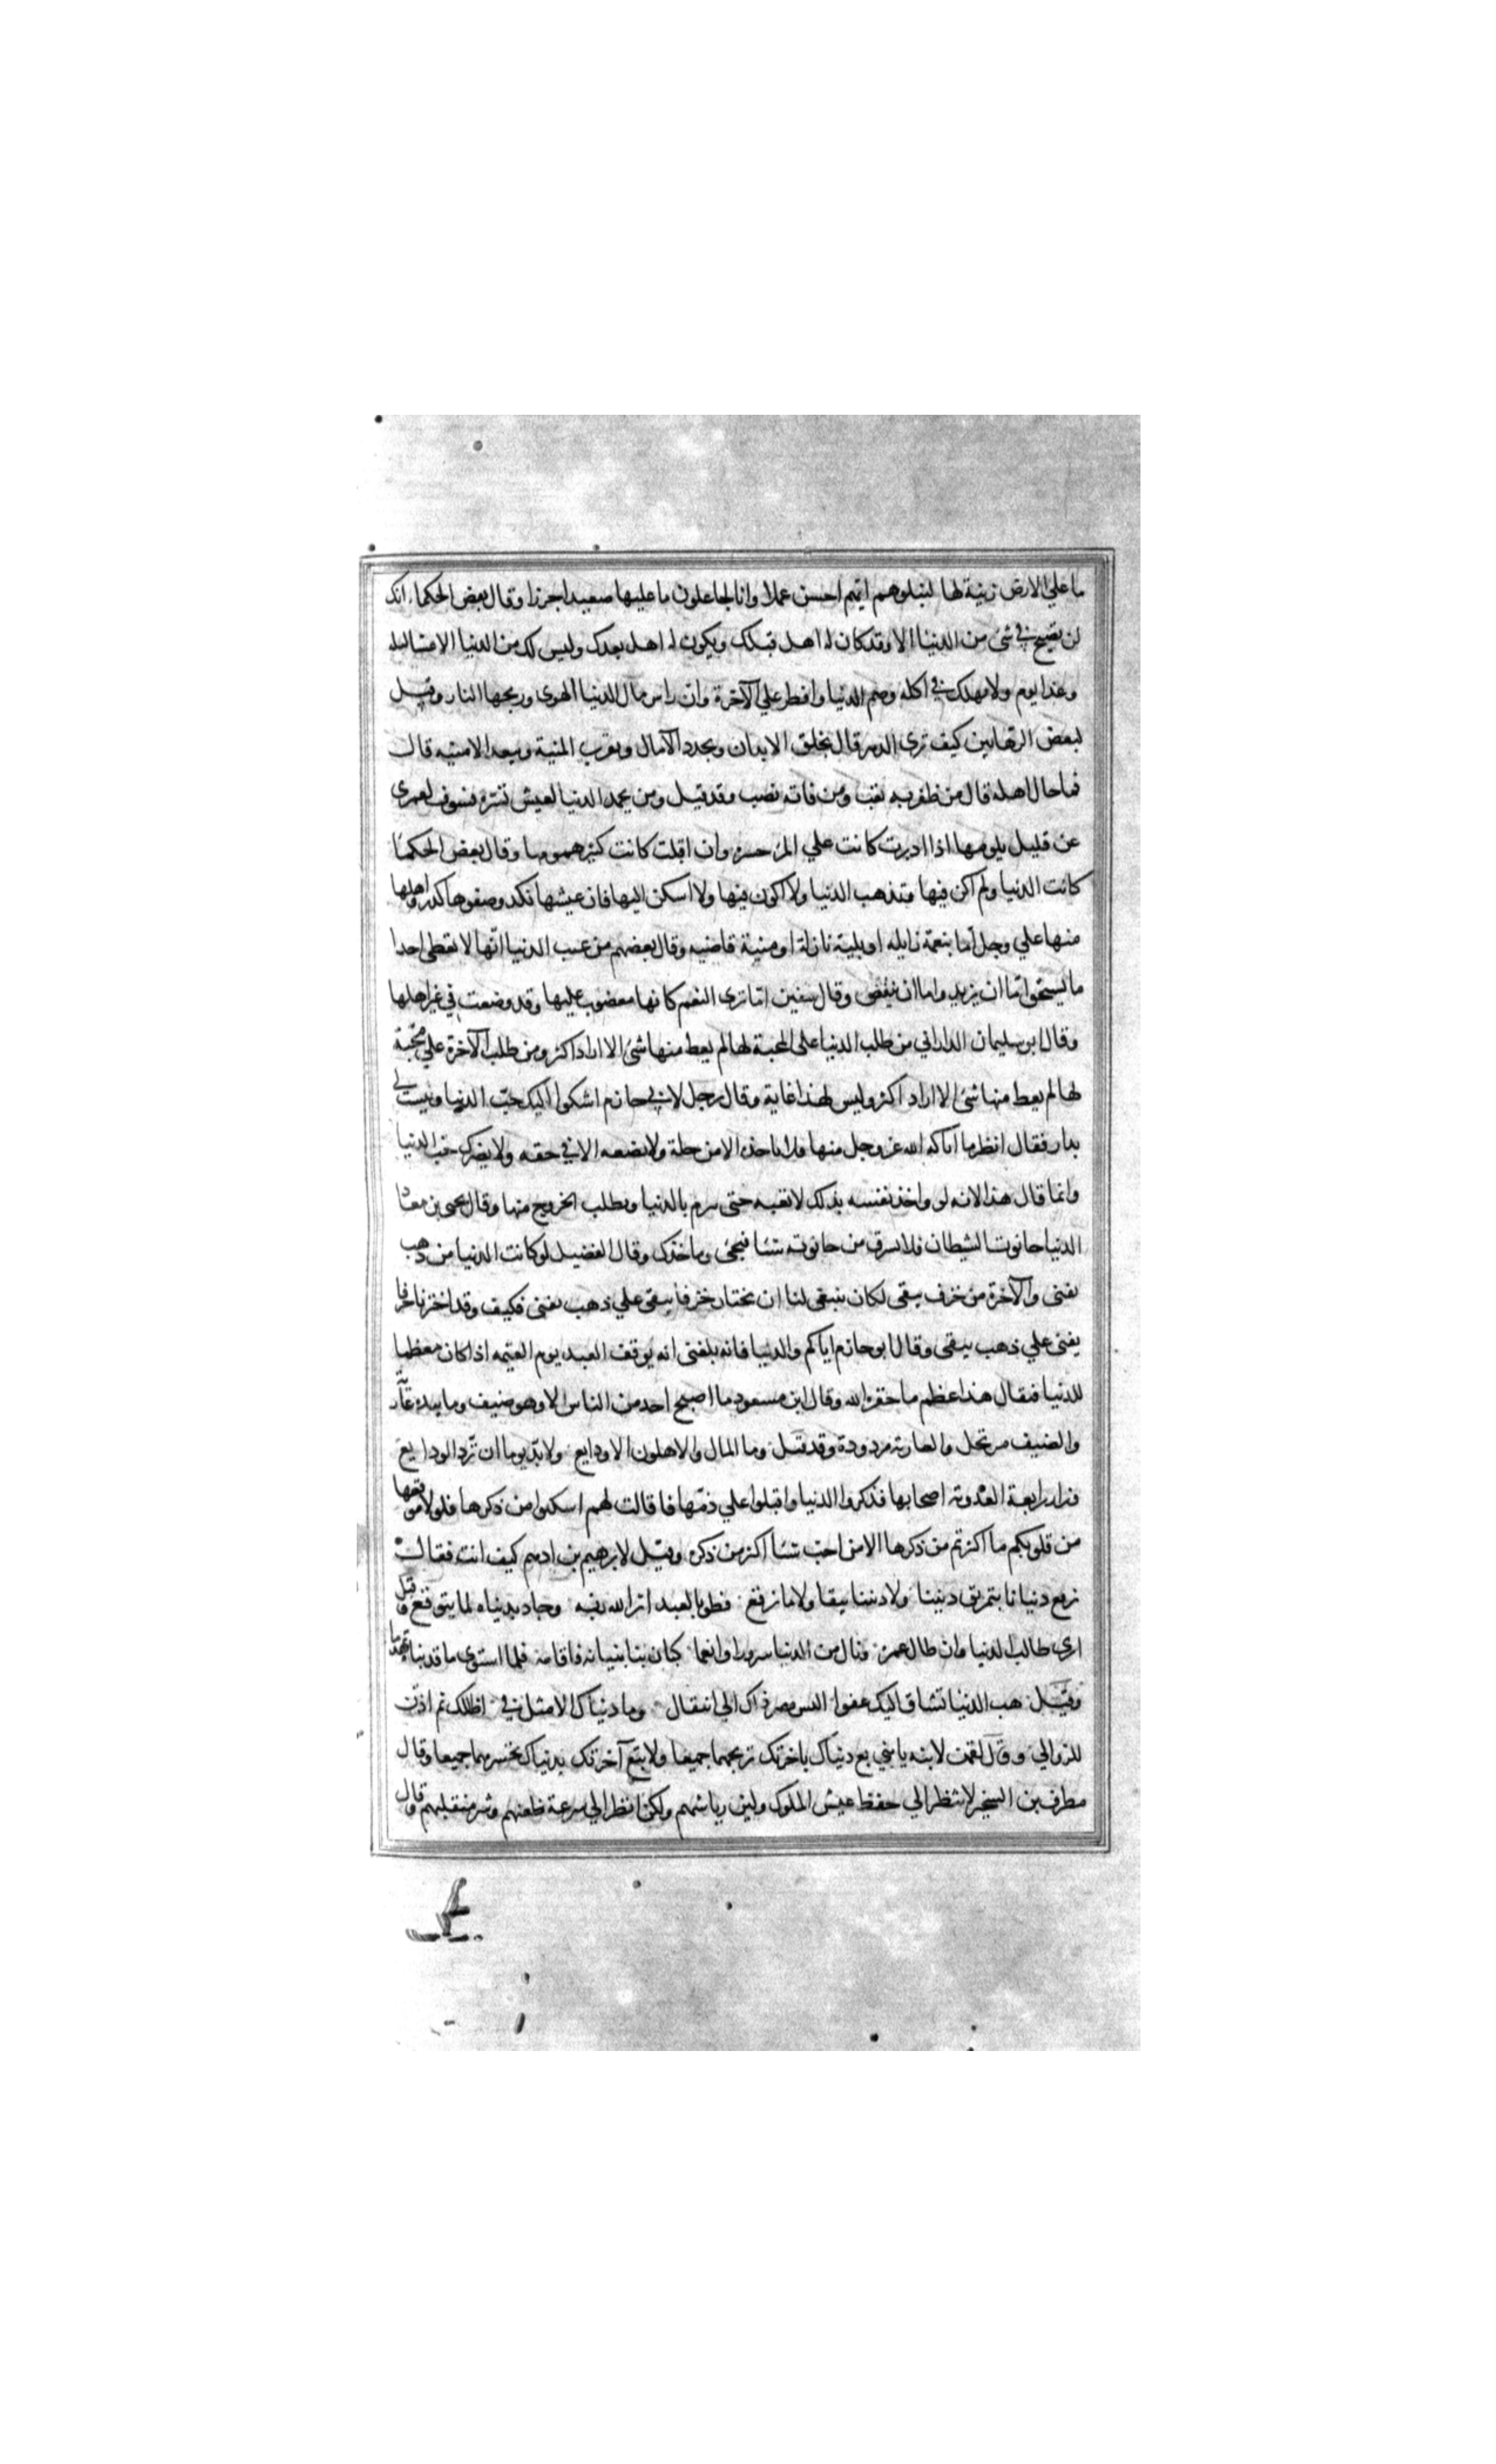 ما علي الارض زينة لها لنبلوهم ايهم احسن عملا وانا لجاعلون ما عليها صعيدا جرزا وقال بعض الحكماء انك
لن تصبح في شئ من الدنيا الا وقد كان له اهل قبلك ويكون له اهل بعدك وليس لك من الدنيا الا عشا ليله
وغدا يوم ولا تهلك في اكله وصم الدنيا وافطر علي الآخرة وان راس مال الدنيا الهوى وربحها النار وقيل
لبعض الرهابين كيف ترى الدهر قال يخلق الابدان ويجدد الآمال ويقرب المنية ويبعد الامنيه قال
فما حال اهله قال من ظفر به تعب ومن فاته نصب وقد قيل ومن يحمد الدنيا لعيش تسره فسوف لعمرى
عن قليل يلومها اذا ادبرت كانت علي المرء حسرة وان اقبلت كانت كثير همومها وقال بعض الحكما
كانت الدنيا ولم اكن فيها وتذهب الدنيا ولا اكون فيها ولا اسكن اليها فان عيشها نكد وصفوها كدر واهلها
منها علي وجل اما بنعمة زايله او بلية نازلة او منية قاضيه وقال بعضهم من عيب الدنيا انها لا تعطى احدا
ما يستحق اما ان يزيد واما ان ينقص وقال سفين اما ترى النعم كانها مغضوب عليها وقد وضعت في غير اهلها
وقال ابو سليمان الداراني من طلب الدنيا على المحبة لها لم يعط منها شئ الا اراد اكثر ومن طلب الآخرة علي محبة
لها لم يعط منها شئ الا اراد اكثر وليس لهذا غاية وقال رجل لابي حازم اشكوا اليك حب الدنيا وليست لي
بدار فقال انظر ما آتاكه الله عز وجل منها فلا تاخذه الا من حلة ولا تضعه الا في حقه ولا يضرك حب الدنيا
وانما قال هذا لانه لو واخذ نفسه بذلك لاتعبه حتى يبرم بالدنيا ويطلب الخروج منها وقال يحيى بن معاذ
الدنيا حانوت الشيطان فلا تسرق من حانوته شيئا فيجئ وياخذك وقال الفضيل لو كانت الدنيا من ذهب
يفنى والآخرة من خزف يبقى لكان ينبغى لنا ان نختار خزفا يبقى علي ذهب يفنى فكيف وقد اخترنا خزفا
يفنى علي ذهب يبقى وقال ابو حازم اياكم والدنيا فانه بلغنى انه يوقف العبد يوم القيمه اذا كان معظما
للدنيا فيقال هذا عظم ما حقره الله وقال ابن مسعود ما اصبح احد من الناس الا وهو ضيف وما بيده عارية
والضيف مرتحل والعارية مردودة وقد قيل وما المال والاهلون الا ودايع ولا بد يوما ان ترد الودايع
وزار رابعة العدوية اصحابها فذكروا الدنيا واقبلوا علي ذمها فاقالت لهم اسكتوا من ذكرها فلولا موقعها
من قلوبكم ما اكثرتم من ذكرها الا من احب شيئا اكثر من ذكره وقيل لابرهيم بن ادهم كيف انت فقال
نرقع دنيانا بتمزيق ديننا ولا ديننا يبقا ولا ما نرقع فطوبا لعبد اثر الله ربه وجاد بدنياه لما يتوقع وقيل
ارى طالب الدنيا وان طال عمره ونال من الدنيا سرورا وانعما كبان بنا بنيانه فاقامه فلما استوى ما قد بناه تهدما
وقيل هب الدنيا تساق اليك عفوا اليس مصير ذاك الي انتقال وما دنياك الا مثل فئ اظلك ثم اذن
للزوالي وقال لقمن لابنه يا بني بع دنياك باخرتك تربحهما جميعا ولا تبع آخرتك بدنياك تخسرهما جميعا وقال
مطرف بن الشخير لا تنظر الي خفظ عيش الملوك ولين رياشهم ولكن انظر الي سرعة ظعنهم وشر منقلبهم وقال